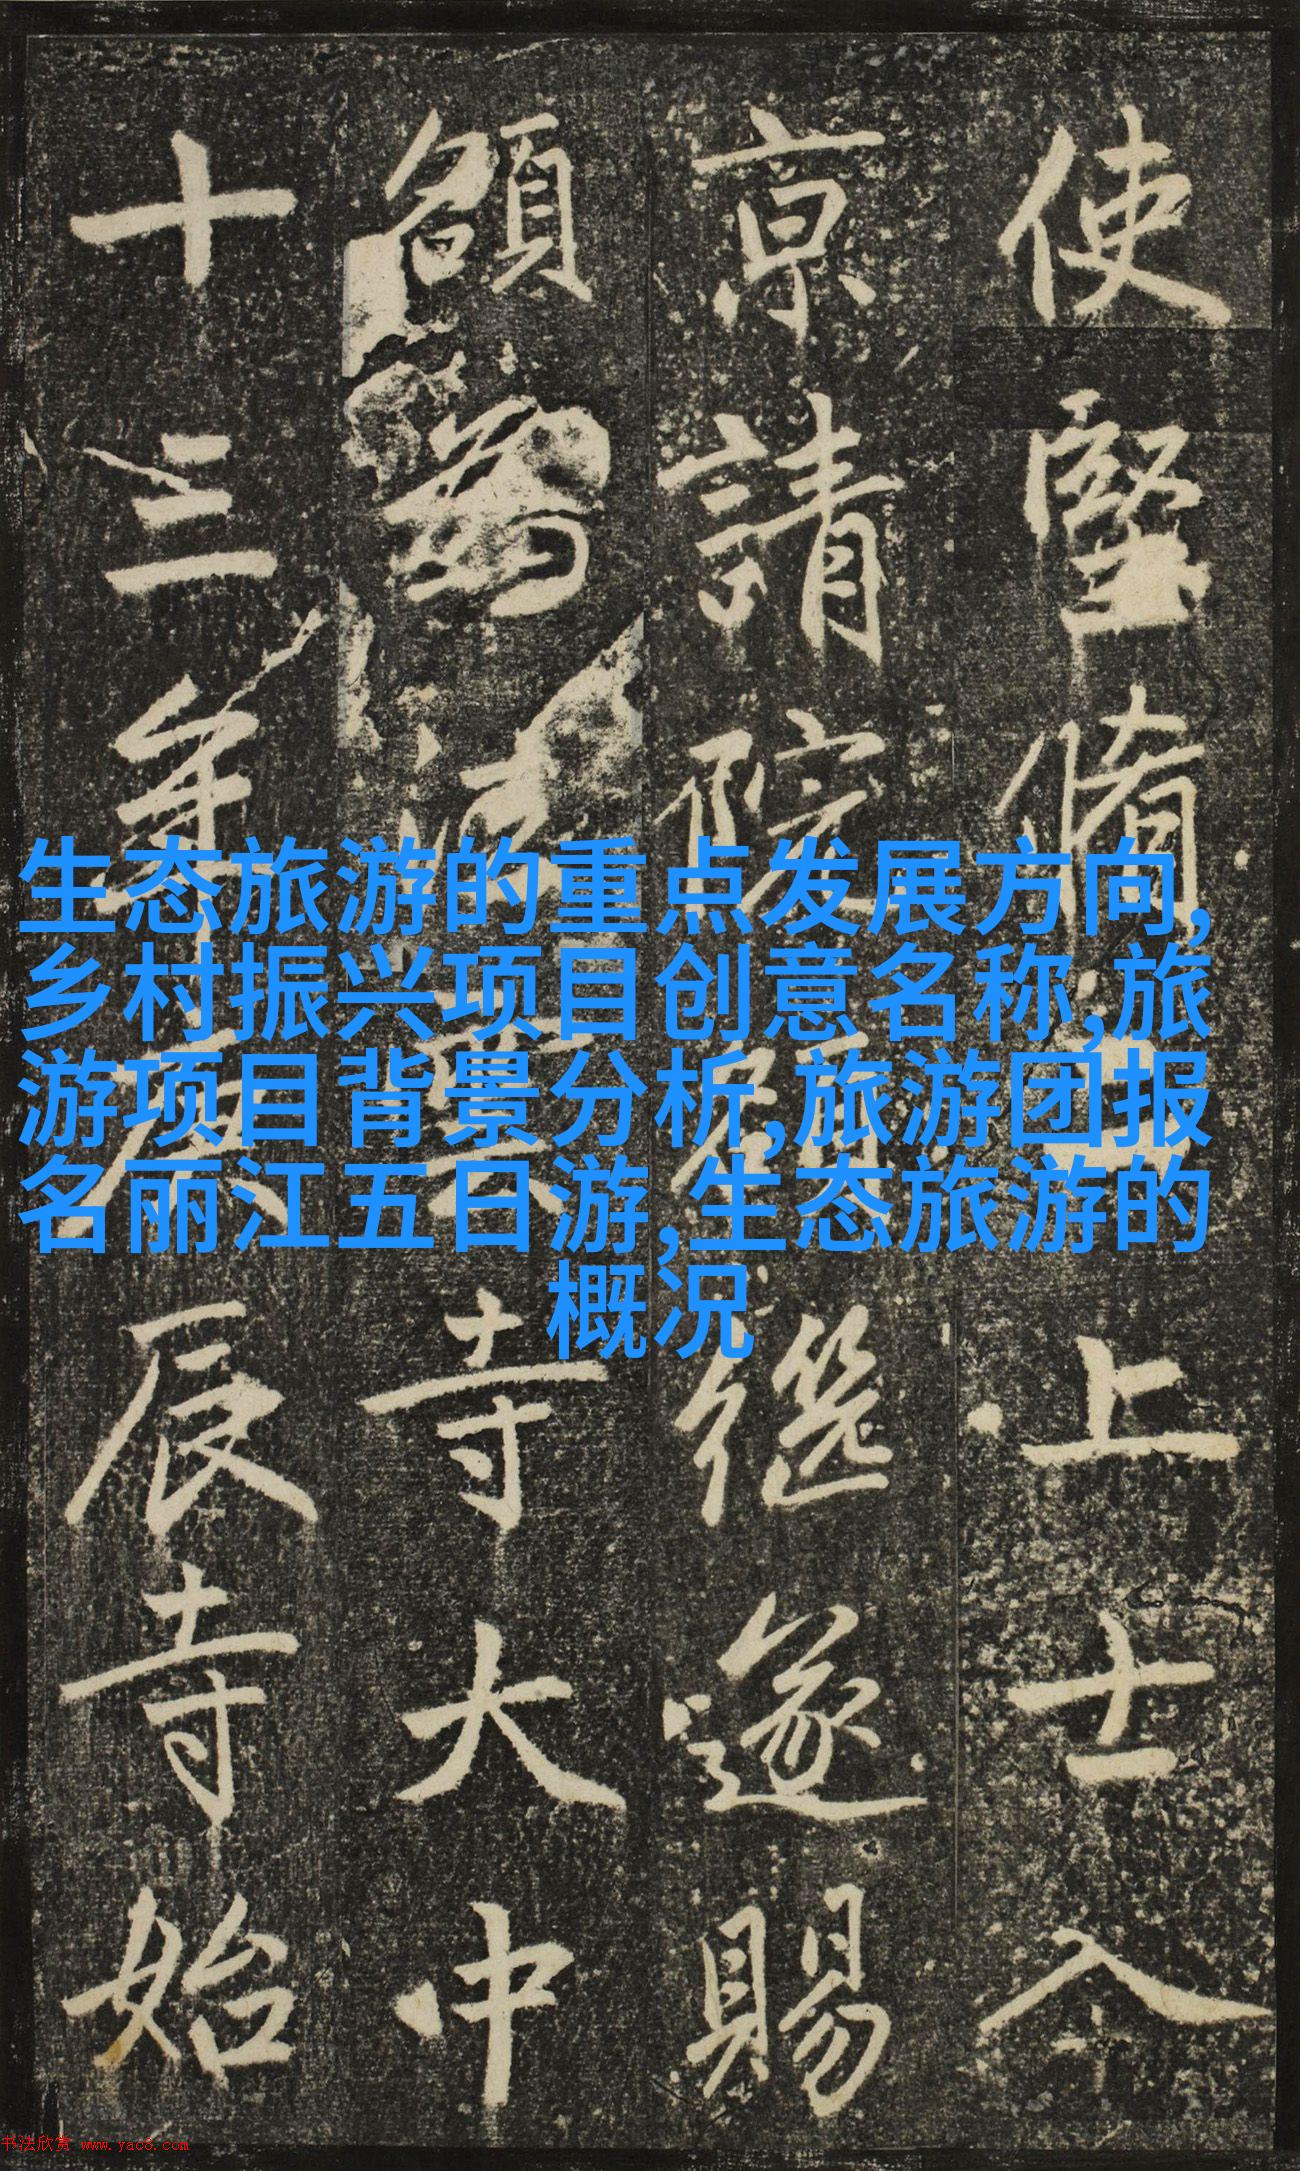 使堅脩上士入
京請院繼遂賜
額為雲寺大中
十三年庚辰寺始
生态旅游的重点发展方向,
乡村振兴项目创意名称,旅
游项目背景分析,旅游团报
名丽江五日游,生态旅游的
概况
书法欣赏 www.yac8.com